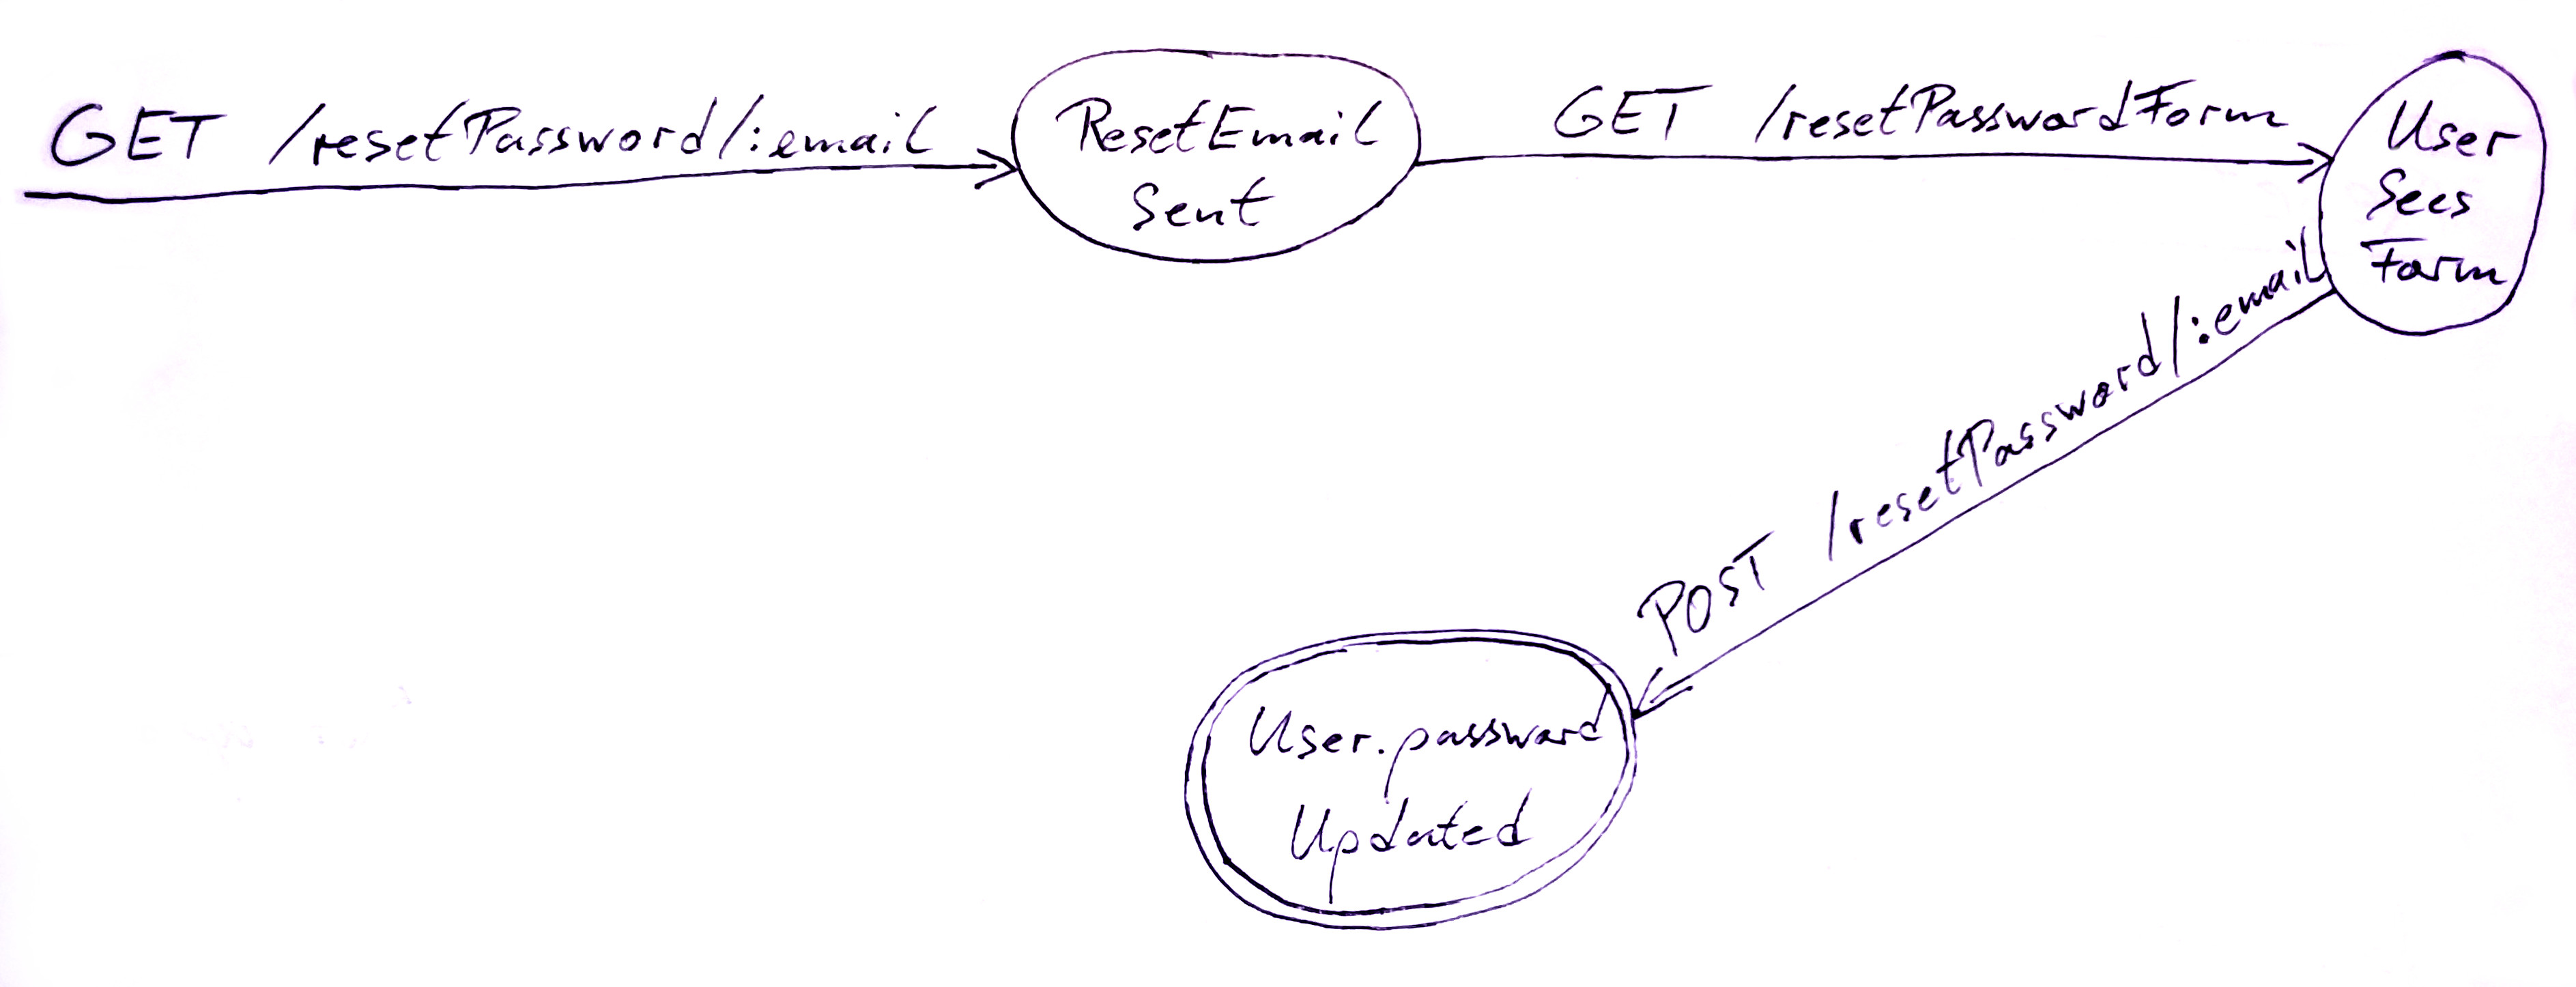 GET /resetPassword/:email
ResetEmail
Sent
GET /resetPasswordForm
User
Sees
Form
POST /resetPassword/:email
User.password
Updated